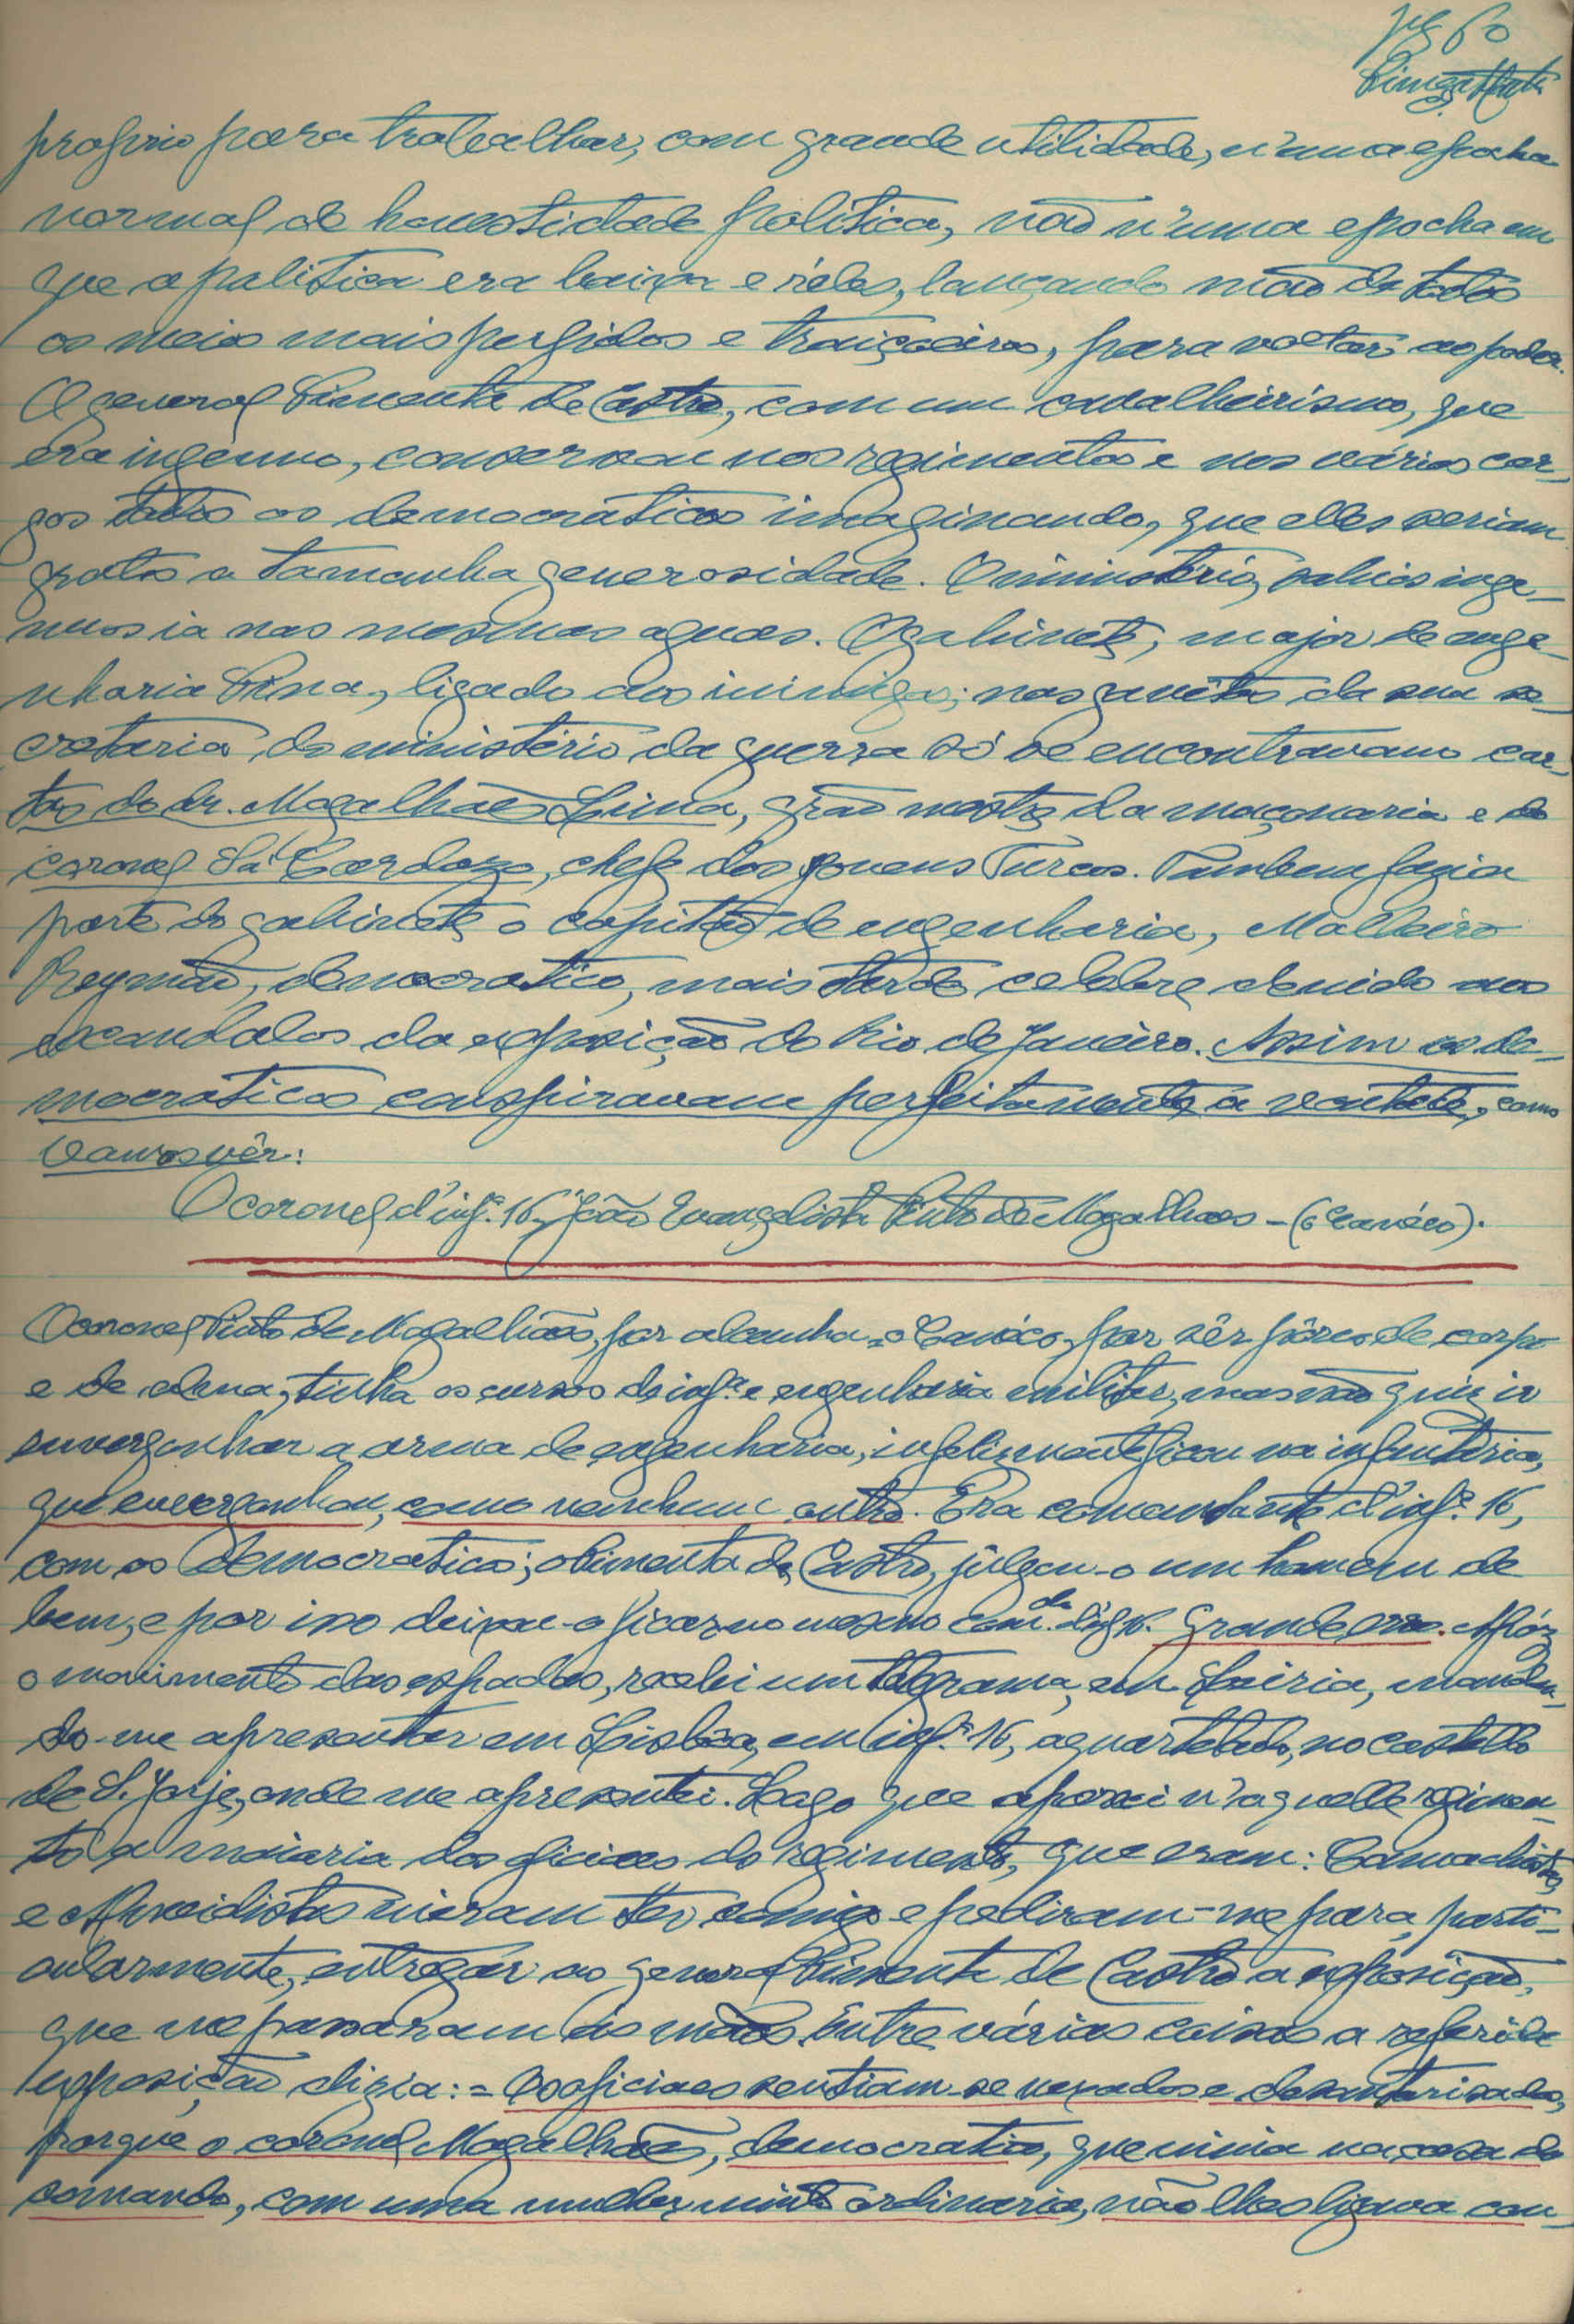 fls 60
proprio para trabalhar, com grande utilidade, n'uma epocha
normal de honestidade politica, não n'uma epocha em
que a politica era baixa e réles, lançando mão de todos
os meios mais perfidos e traiçoeiros, para voltar ao poder.
O general Pimenta de Castro, com um cavalheirismo, que
era ingénuo, conservou nos regimentos e nos vários car-
gos todos os democraticos imaginando, que elles seriam
gratos a tamanha generosidade. O ministério, sabios inge-
nuos ia nas mesmas aguas. O gabinete, major de enge-
nharia Pina, ligado aos inimigos; nas gavêtas da sua se-
cretaria do ministério da guerra só se encontravam car-
tas do dr. Magalhães Lima, grão mestre da maçonaria e do
coronel Sá Cardozo, chefe dos jovens Turcos. Tambem fazia
parte do gabinete o capitão de engenharia, Malheiro
Reymão, democratico, mais tarde celebre devido aos
escandalos da exposição do Rio de Janeiro. Assim os de-
mocraticos conspiravam perfeitamente á vontade, como
vamos vêr:
O coronel d'inf.ª 16, João Evangelista Pinto de Magalhães - (o Canéco).
O coronel Pinto de Magalhães, por alcunha = o Canéco, por sêr pôrco de corpo
e de alma, tinha os cursos de inf.ª e engenharia militar, mas não quiz ir
envergonhar a arma de engenharia, infelizmente ficou na infantaria,
que envergonhou, como nenhum outro. Era comandante d'inf.ª 16,
com os democraticos; o Pimenta de Castro, julgou-o um homem de
bem, e por isso deixou-o ficar no mesmo com.do d'inf.ª 16. Grande erro. Apóz
o movimento das espadas, recebi um telegrama, em Leiria, mandan-
do-me apresentar em Lisbôa, em inf.ª 16, aquartelado, no castello
de S. Jorje, onde me apresentei. Logo que apareci n'aquelle regimen-
to a maioria dos oficiaes do regimento, que eram: Camachistas
e Almeidistas vieram ter comigo e pediram-me para, parti-
cularmente, entregár ao general Pimenta de Castro a exposição,
que me passaram ás mãos. Entre várias coisas a referida
exposição dizia: = Os oficiaes sentiam-se vexados e desautorisados,
porque o coronel Magalhães, democratico, que vivia na casa do
comando, com uma mulher muito ordinaria, não lhes ligava con-